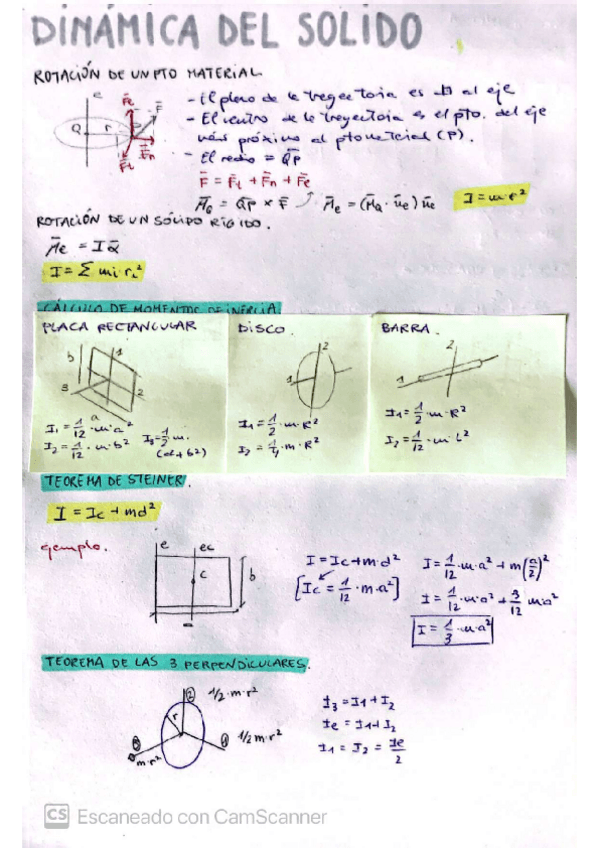 DINÁMICA DEL SOLIDO
ROTACIÓN DE UN PTO MATERIAL.
- El plano de la trayectoria es al eje
- El centro de la trayectoria es el pto. del eje
más próximo al pto material (P).
- El radio = QP
e
Q
r
F̄e
F̄
F̄n
F̄t
F̄ = F̄t + F̄n + F̄e
M̄Q = QP × F̄
M̄e = (M̄Q · ūe) ūe
I = m·r²
ROTACIÓN DE UN SÓLIDO RÍGIDO.
M̄e = I
I = Σ mi·ri²
CÁLCULO DE MOMENTOS DE INERCIA
PLACA RECTANGULAR
b
1
3
2
a
I1 = 1/12 · m·a²
I2 = 1/12 · m·b²
I3 = 1/2 m.
(a²+b²)
DISCO.
2
1
I1 = 1/2 · m·R²
I2 = 1/4 · m·R²
BARRA.
2
1
I1 = 1/2 · m·R²
I2 = 1/12 · m·L²
TEOREMA DE STEINER.
I = Ic + md²
ejemplo.
e
ec
c
b
I = Ic + m·d²
[Ic = 1/12 · m·a²]
I = 1/12 · m·a² + m(a/2)²
I = 1/12 · m·a² + 3/12 m·a²
I = 1/3 · m·a²
TEOREMA DE LAS 3 PERPENDICULARES.
2
1/2·m·r²
r
3
m·r²
1
1/2 m·r²
I3 = I1 + I2
Ie = I1 + I2
I1 = I2 = Ie/2
CS Escaneado con CamScanner